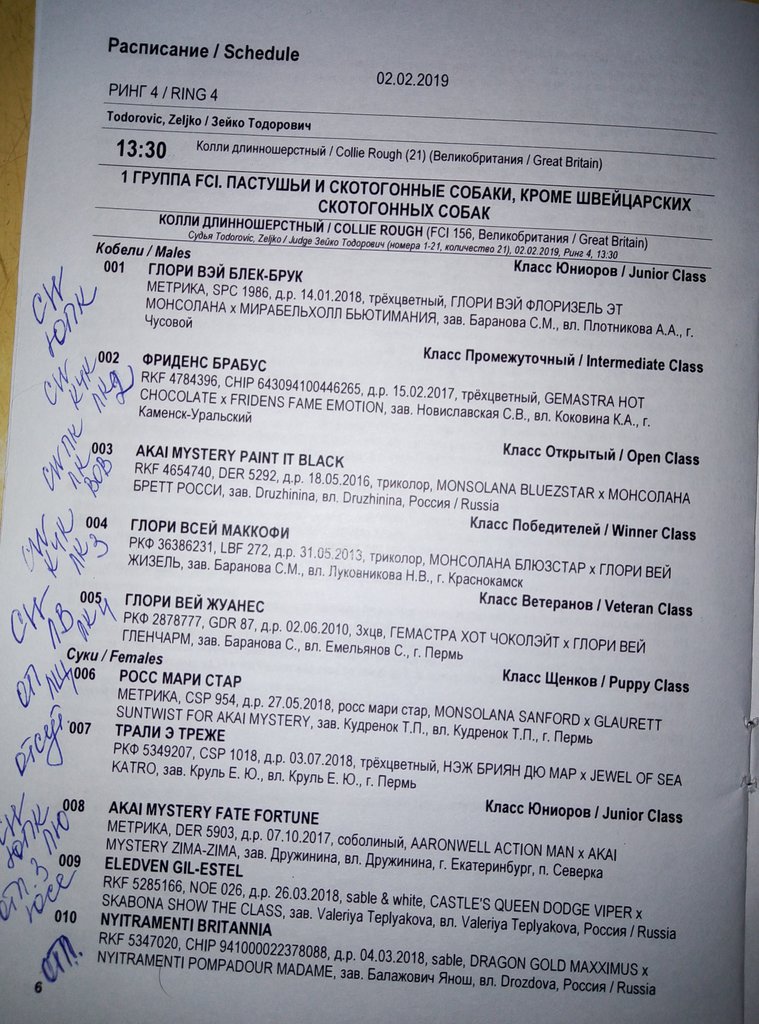 Расписание / Schedule
02.02.2019
РИНГ 4 / RING 4
Todorovic, Zeljko / Зейко Тодорович
13:30 Колли длинношерстный / Collie Rough (21) (Великобритания / Great Britain)
1 ГРУППА FCI. ПАСТУШЬИ И СКОТОГОННЫЕ СОБАКИ, КРОМЕ ШВЕЙЦАРСКИХ
СКОТОГОННЫХ СОБАК
КОЛЛИ ДЛИННОШЕРСТНЫЙ / COLLIE ROUGH (FCI 156, Великобритания / Great Britain)
Судья Todorovic, Zeljko / Judge Зейко Тодорович (номера 1-21, количество 21), 02.02.2019, Ринг 4, 13:30
Кобели / Males
Класс Юниоров / Junior Class
001 ГЛОРИ ВЭЙ БЛЕК-БРУК
МЕТРИКА, SPC 1986, д.р. 14.01.2018, трёхцветный, ГЛОРИ ВЭЙ ФЛОРИЗЕЛЬ ЭТ
МОНСОЛАНА x МИРАБЕЛЬХОЛЛ БЬЮТИМАНИЯ, зав. Баранова С.М., вл. Плотникова А.А., г.
Чусовой
CW
ЮПК
Класс Промежуточный / Intermediate Class
002 ФРИДЕНС БРАБУС
RKF 4784396, CHIP 643094100446265, д.р. 15.02.2017, трёхцветный, GEMASTRA HOT
CHOCOLATE x FRIDENS FAME EMOTION, зав. Новиславская С.В., вл. Коковина К.А., г.
Каменск-Уральский
CW
КЧК
ЛК2
Класс Открытый / Open Class
003 AKAI MYSTERY PAINT IT BLACK
RKF 4654740, DER 5292, д.р. 18.05.2016, триколор, MONSOLANA BLUEZSTAR x МОНСОЛАНА
БРЕТТ РОССИ, зав. Druzhinina, вл. Druzhinina, Россия / Russia
CW ПК
ЛК
BOB
Класс Победителей / Winner Class
004 ГЛОРИ ВСЕЙ МАККОФИ
РКФ 36386231, LBF 272, д.р. 31.05.2013, триколор, МОНСОЛАНА БЛЮЗСТАР x ГЛОРИ ВЕЙ
ЖИЗЕЛЬ, зав. Баранова С.М., вл. Луковникова Н.В., г. Краснокамск
CW
КЧК
ЛК3
Класс Ветеранов / Veteran Class
005 ГЛОРИ ВЕЙ ЖУАНЕС
РКФ 2878777, GDR 87, д.р. 02.06.2010, 3хцв, ГЕМАСТРА ХОТ ЧОКОЛЭЙТ x ГЛОРИ ВЕЙ
ГЛЕНЧАРМ, зав. Баранова С., вл. Емельянов С., г. Пермь
CW
ЛВ
ЛК4
Суки / Females
Класс Щенков / Puppy Class
006 РОСС МАРИ СТАР
МЕТРИКА, CSP 954, д.р. 27.05.2018, росс мари стар, MONSOLANA SANFORD x GLAURETT
SUNTWIST FOR AKAI MYSTERY, зав. Кудренок Т.П., вл. Кудренок Т.П., г. Пермь
ОП
ЛЩ
007 ТРАЛИ Э ТРЕЖЕ
РКФ 5349207, CSP 1018, д.р. 03.07.2018, трёхцветный, НЭЖ БРИЯН ДЮ МАР x JEWEL OF SEA
KATRO, зав. Круль Е. Ю., вл. Круль Е. Ю., г. Пермь
отсут
Класс Юниоров / Junior Class
008 AKAI MYSTERY FATE FORTUNE
МЕТРИКА, DER 5903, д.р. 07.10.2017, соболиный, AARONWELL ACTION MAN x AKAI
MYSTERY ZIMA-ZIMA, зав. Дружинина, вл. Дружинина, г. Екатеринбург, п. Северка
CW
ЮПК
ЛЮ
009 ELEDVEN GIL-ESTEL
RKF 5285166, NOE 026, д.р. 26.03.2018, sable & white, CASTLE'S QUEEN DODGE VIPER x
SKABONA SHOW THE CLASS, зав. Valeriya Teplyakova, вл. Valeriya Teplyakova, Россия / Russia
отл. 3
010 NYITRAMENTI BRITANNIA
RKF 5347020, CHIP 941000022378088, д.р. 04.03.2018, sable, DRAGON GOLD MAXXIMUS x
NYITRAMENTI POMPADOUR MADAME, зав. Балажович Янош, вл. Drozdova, Россия / Russia
отл.
6